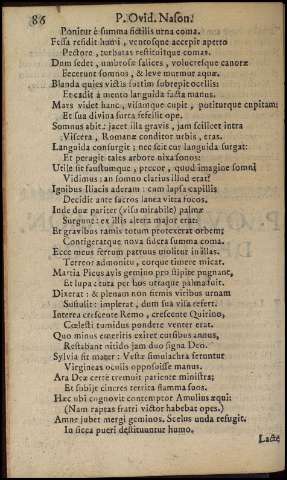 86 P. Ovid. Nason.
Ponitur è summa fictilis urna coma.
Fessa resedit humi, ventosque accepit aperto
Pectore, turbatas restituitque comas.
Dum sedet, umbrosæ salices, volucresque canoræ
Fecerunt somnos, & leve murmur aquæ.
Blanda quies victis furtim subrepit ocellis:
Et cadit à mento languida facta manus.
Mars videt hanc, visamque cupit, potiturque cupitam:
Et sua divina furta fefellit ope.
Somnus abit: jacet illa gravis, jam scilicet intra
Viscera, Romanæ conditor urbis, eras.
Languida consurgit; nec scit cur languida surgat:
Et peragit tales arbore nixa sonos:
Utile sit faustumque, precor, quod imagine somni
Vidimus: an somno clarius illud erat?
Ignibus Iliacis aderam: cum lapsa capillis
Decidit ante sacros lanea vitta focos.
Inde duæ pariter (visu mirabile) palmæ
Surgunt: ex illis altera major erat:
Et gravibus ramis totum protexerat orbem;
Contigeratque nova sidera summa coma.
Ecce meus ferrum patruus molitur in illas.
Terreor admonitu, corque timore micat.
Martia Picus avis gemino pro stipite pugnant,
Et lupa: tuta per hos utraque palma fuit.
Dixerat: & plenam non firmis viribus urnam
Sustulit: implerat, dum sua visa refert.
Interea crescente Remo, crescente Quirino,
Cœlesti tumidus pondere venter erat.
Quo minus emeritis exiret cursibus annus,
Restabant nitido jam duo signa Deo.
Sylvia fit mater: Vestæ simulachra feruntur
Virgineas oculis opposuisse manus.
Ara Deæ certè tremuit pariente ministra;
Et subiit cineres territa flamma suos.
Hæc ubi cognovit contemptor Amulius æqui:
(Nam raptas fratri victor habebat opes.)
Amne jubet mergi geminos. Scelus unda refugit.
In sicca pueri destituuntur humo.
Lacte